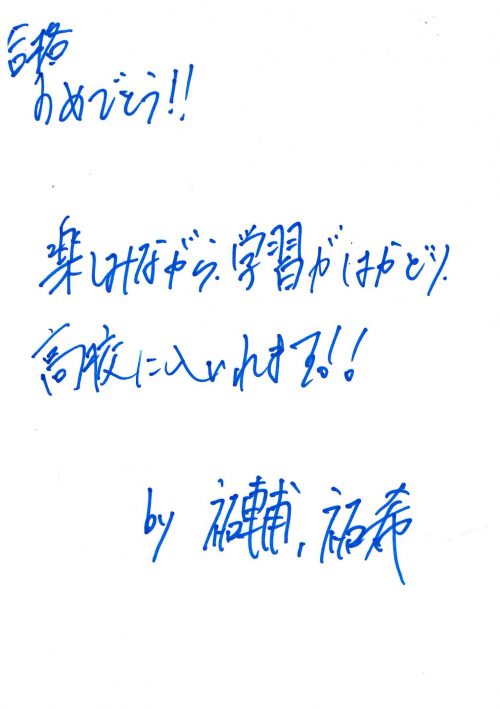 合格
おめでとう!!
楽しみながら、学習がはかどり、
高校に入いれます!!
by 祐輔、祐希